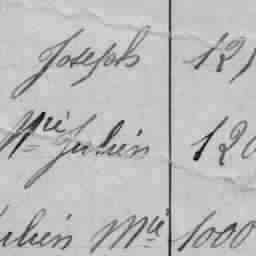 Joseph 121
Mie Julien 120
Julien Mie 1000